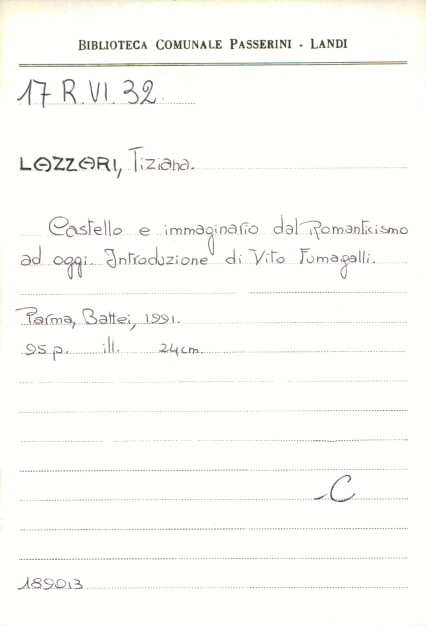 BIBLIOTECA COMUNALE PASSERINI - LANDI
17 R. VI. 32
LAZZARI, Tiziana.
Castello e immaginario dal Romanticismo
ad oggi. Introduzione di Vito Fumagalli.
Parma, Battei, 1991.
95 p. ill. 24 cm.
C
189013